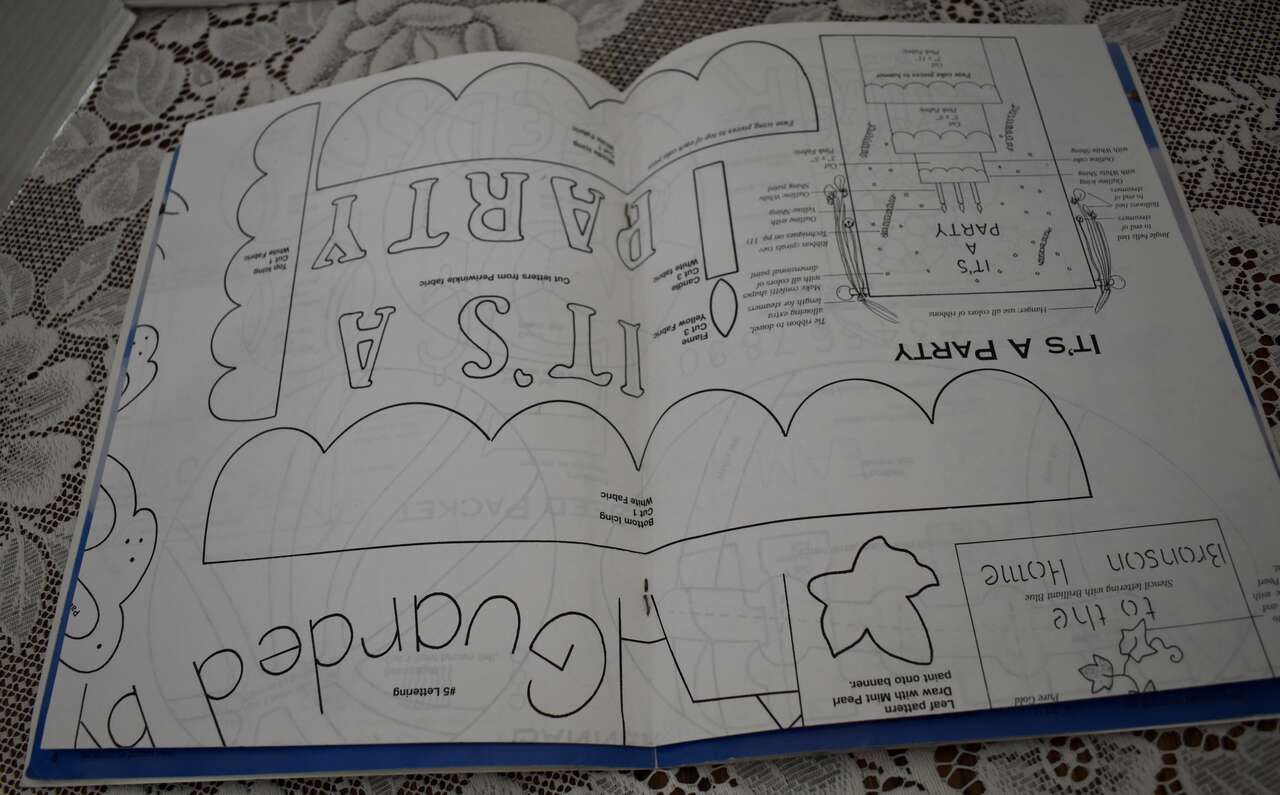 IT'S A PARTY
Hanger: use all colors of ribbons
Tie ribbon to dowel,
allowing extra
length for steamers
Make confetti shapes
with all colors of
dimensional paint
Ribbon spirals (see
Techniques on pg. 11)
Outline with
Yellow Shiny
Outline White
Shiny paint
Cut
3" x 5"
Pink Fabric
Jingle bells tied
to end of
streamers
Balloons tied
to end of
streamers
Outline icing
with White Shiny
Outline cake
with White Shiny
IT'S
A
PARTY
Cut
Pink Fabric
Fuse cake pieces to banner
Cut
Pink Fabric
Flame
Cut 3
Yellow Fabric
Candle
Cut 3
White Fabric
IT'S A
Cut letters from Periwinkle fabric
PARTY
PARTY
Top Icing
Cut 1
White Fabric
Middle Icing
Cut 1
White Fabric
Fuse icing pieces to top of each cake piece
Bottom Icing
Cut 1
White Fabric
#5 Lettering
Guarded by
Leaf pattern
Draw with Mint Pearl
paint onto banner.
Pure Gold
to the
Stencil lettering with Brilliant Blue
Bronson Home